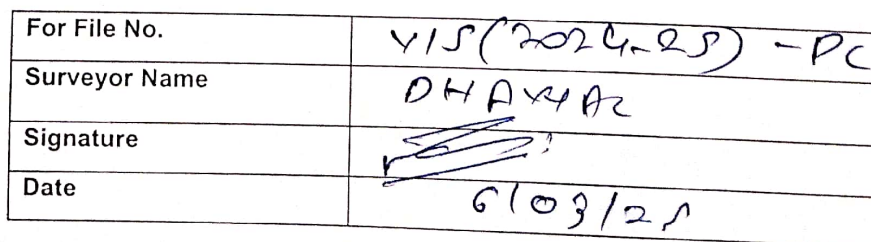 For File No. VIS(2024-25) - PC
Surveyor Name DHAVAL
Signature
Date 6/03/25